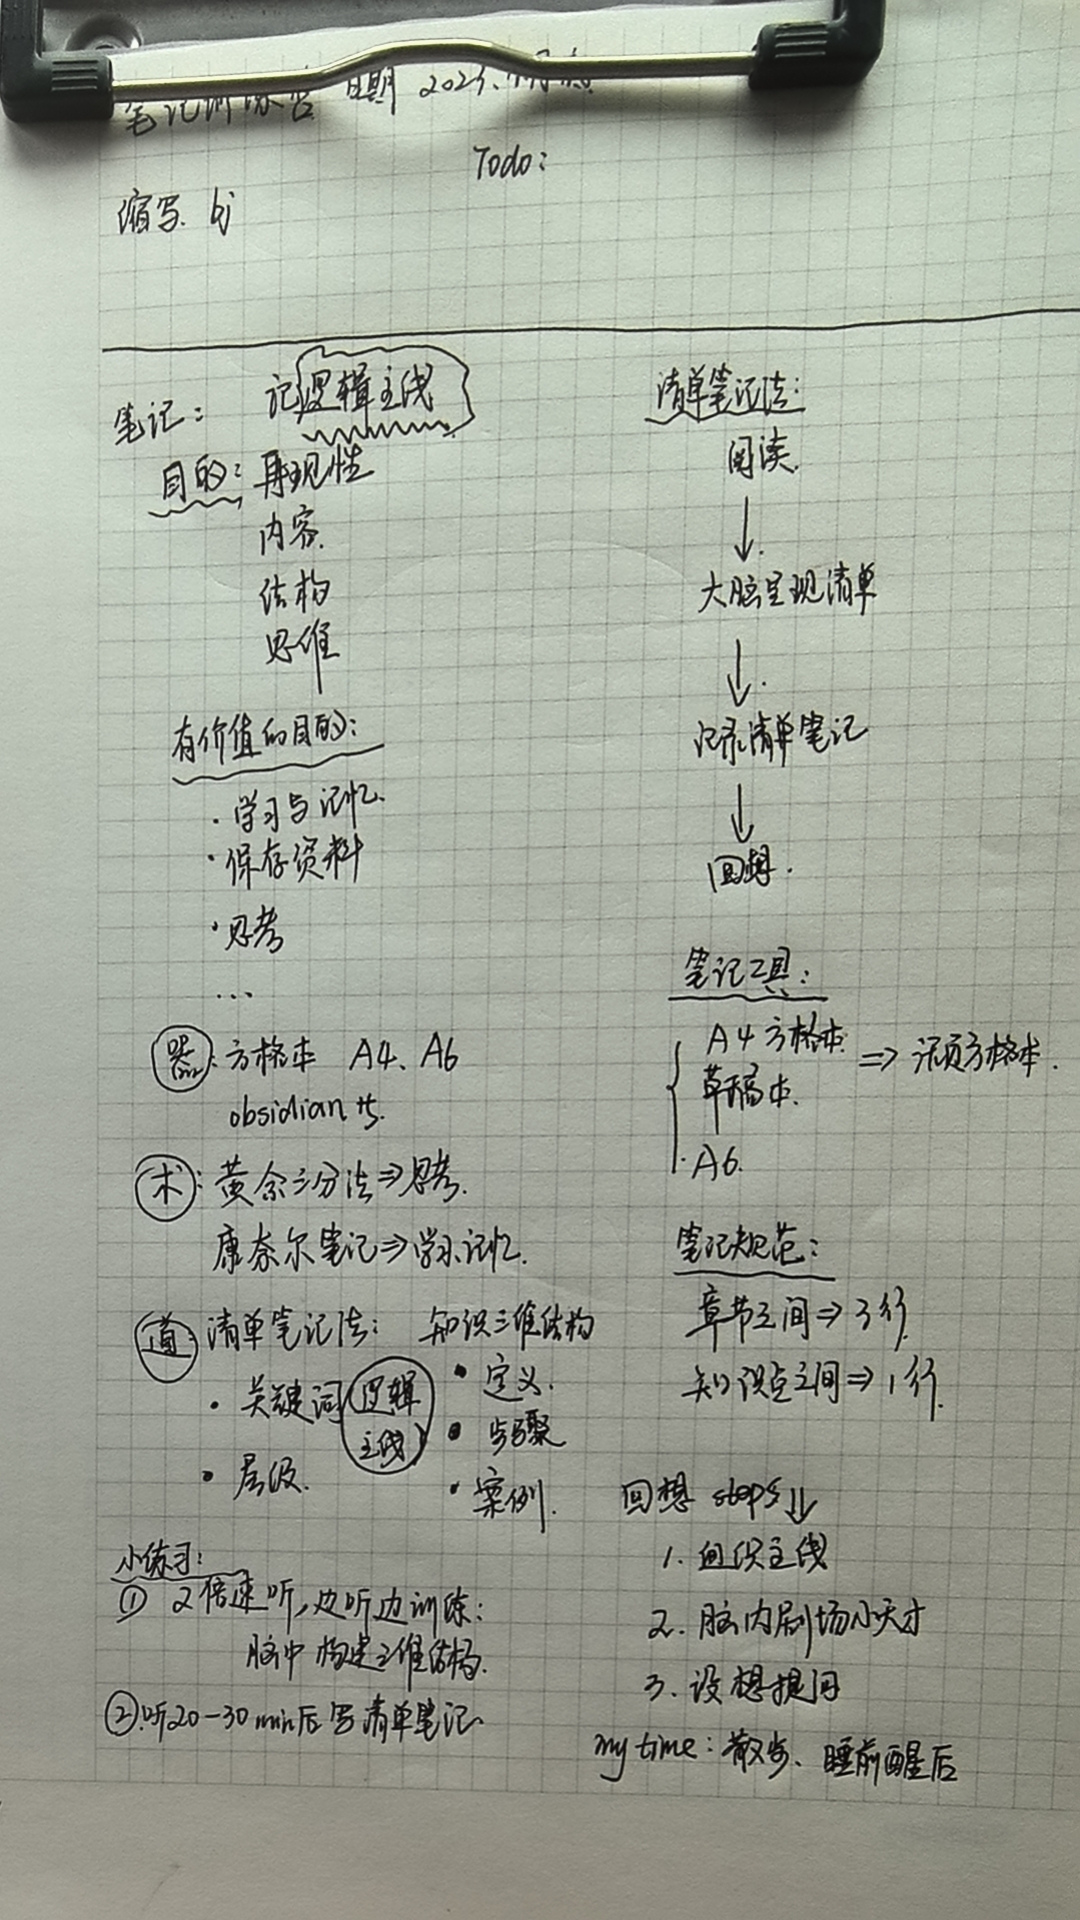 笔记训练营 日期 2023.
Todo:
缩写. bj
笔记: 记逻辑主线
目的: 再现性
内容.
结构
思维
有价值的目的:
·学习与记忆.
·保存资料
·思考
...
器: 方格本 A4、A6
obsidian 书.
术: 黄金三分法⇒思考.
康奈尔笔记⇒学习记忆.
道: 清单笔记法: 知识三维结构
·关键词 逻辑主线 ·定义.
·层级. ·步骤
·案例.
小练习:
① 2倍速听,边听边训练:
脑中构建三维结构.
②.听20-30min后写清单笔记
清单笔记法:
阅读.
↓
大脑呈现清单
↓
记录清单笔记
↓
回想.
笔记工具:
A4方格本. ⇒ 活页方格本.
草稿本.
·A6.
笔记规范:
章节之间⇒3行.
知识点之间⇒1行.
回想 steps⇓
1. 回忆主线
2. 脑内剧场小天才
3. 设想提问
my time: 散步、睡前醒后